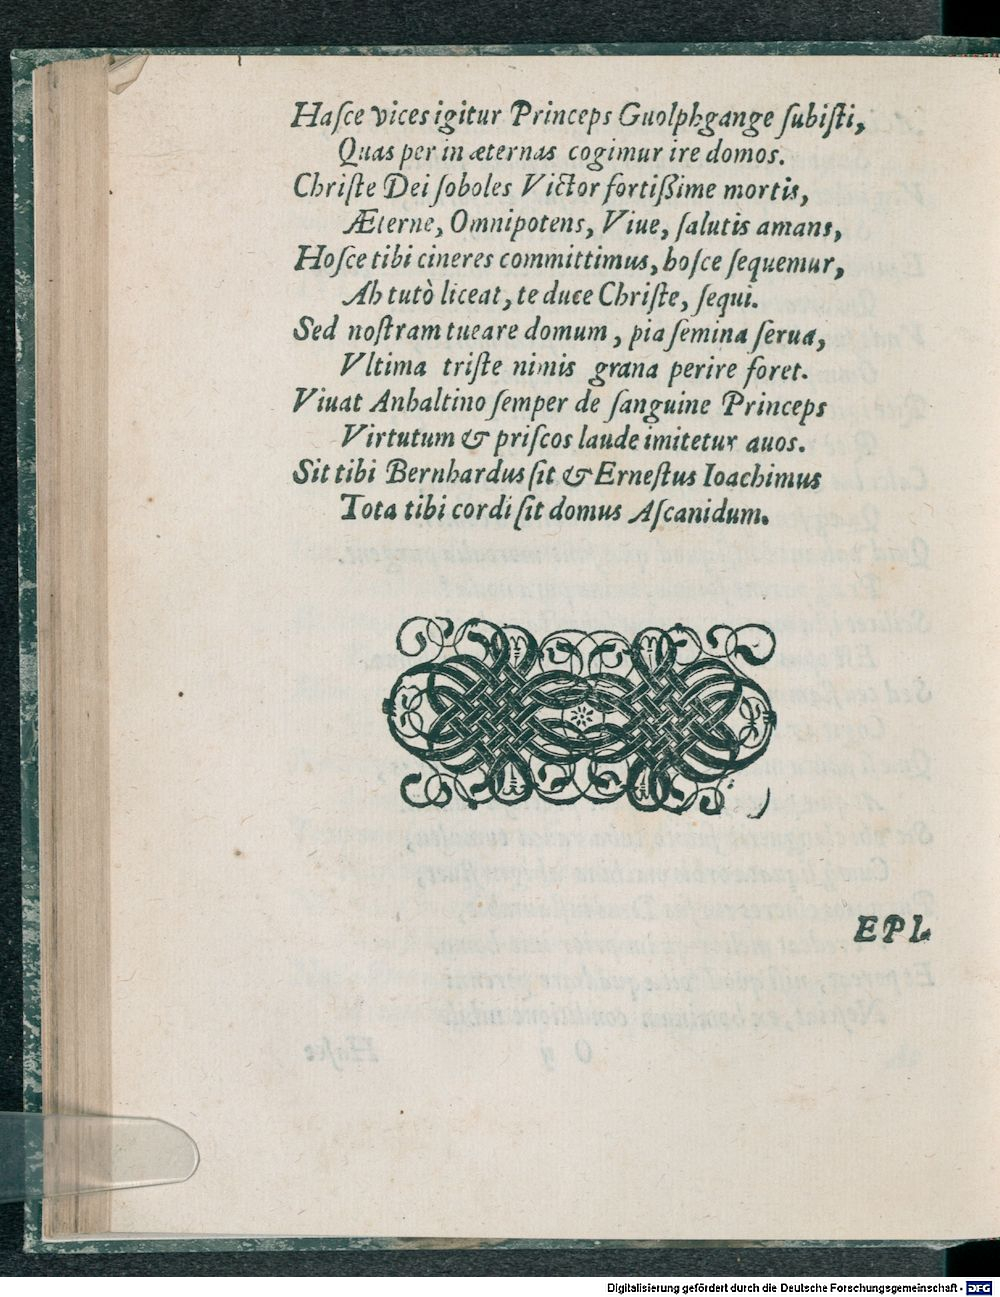 Haſce vices igitur Princeps Guolphgange ſubiſti,
Quas per in æternas cogimur ire domos.
Chriſte Dei ſoboles Victor fortißime mortis,
Æterne, Omnipotens, Viue, ſalutis amans,
Hoſce tibi cineres committimus, hoſce ſequemur,
Ah tutò liceat, te duce Chriſte, ſequi.
Sed noſtram tueare domum, pia ſemina ſerua,
Vltima triſte nimis grana perire foret.
Viuat Anhaltino ſemper de ſanguine Princeps
Virtutum & priſcos laude imitetur auos.
Sit tibi Bernhardus ſit & Erneſtus Ioachimus
Tota tibi cordi ſit domus Aſcanidum.
EPI.
Digitalisierung gefördert durch die Deutsche Forschungsgemeinschaft - DFG